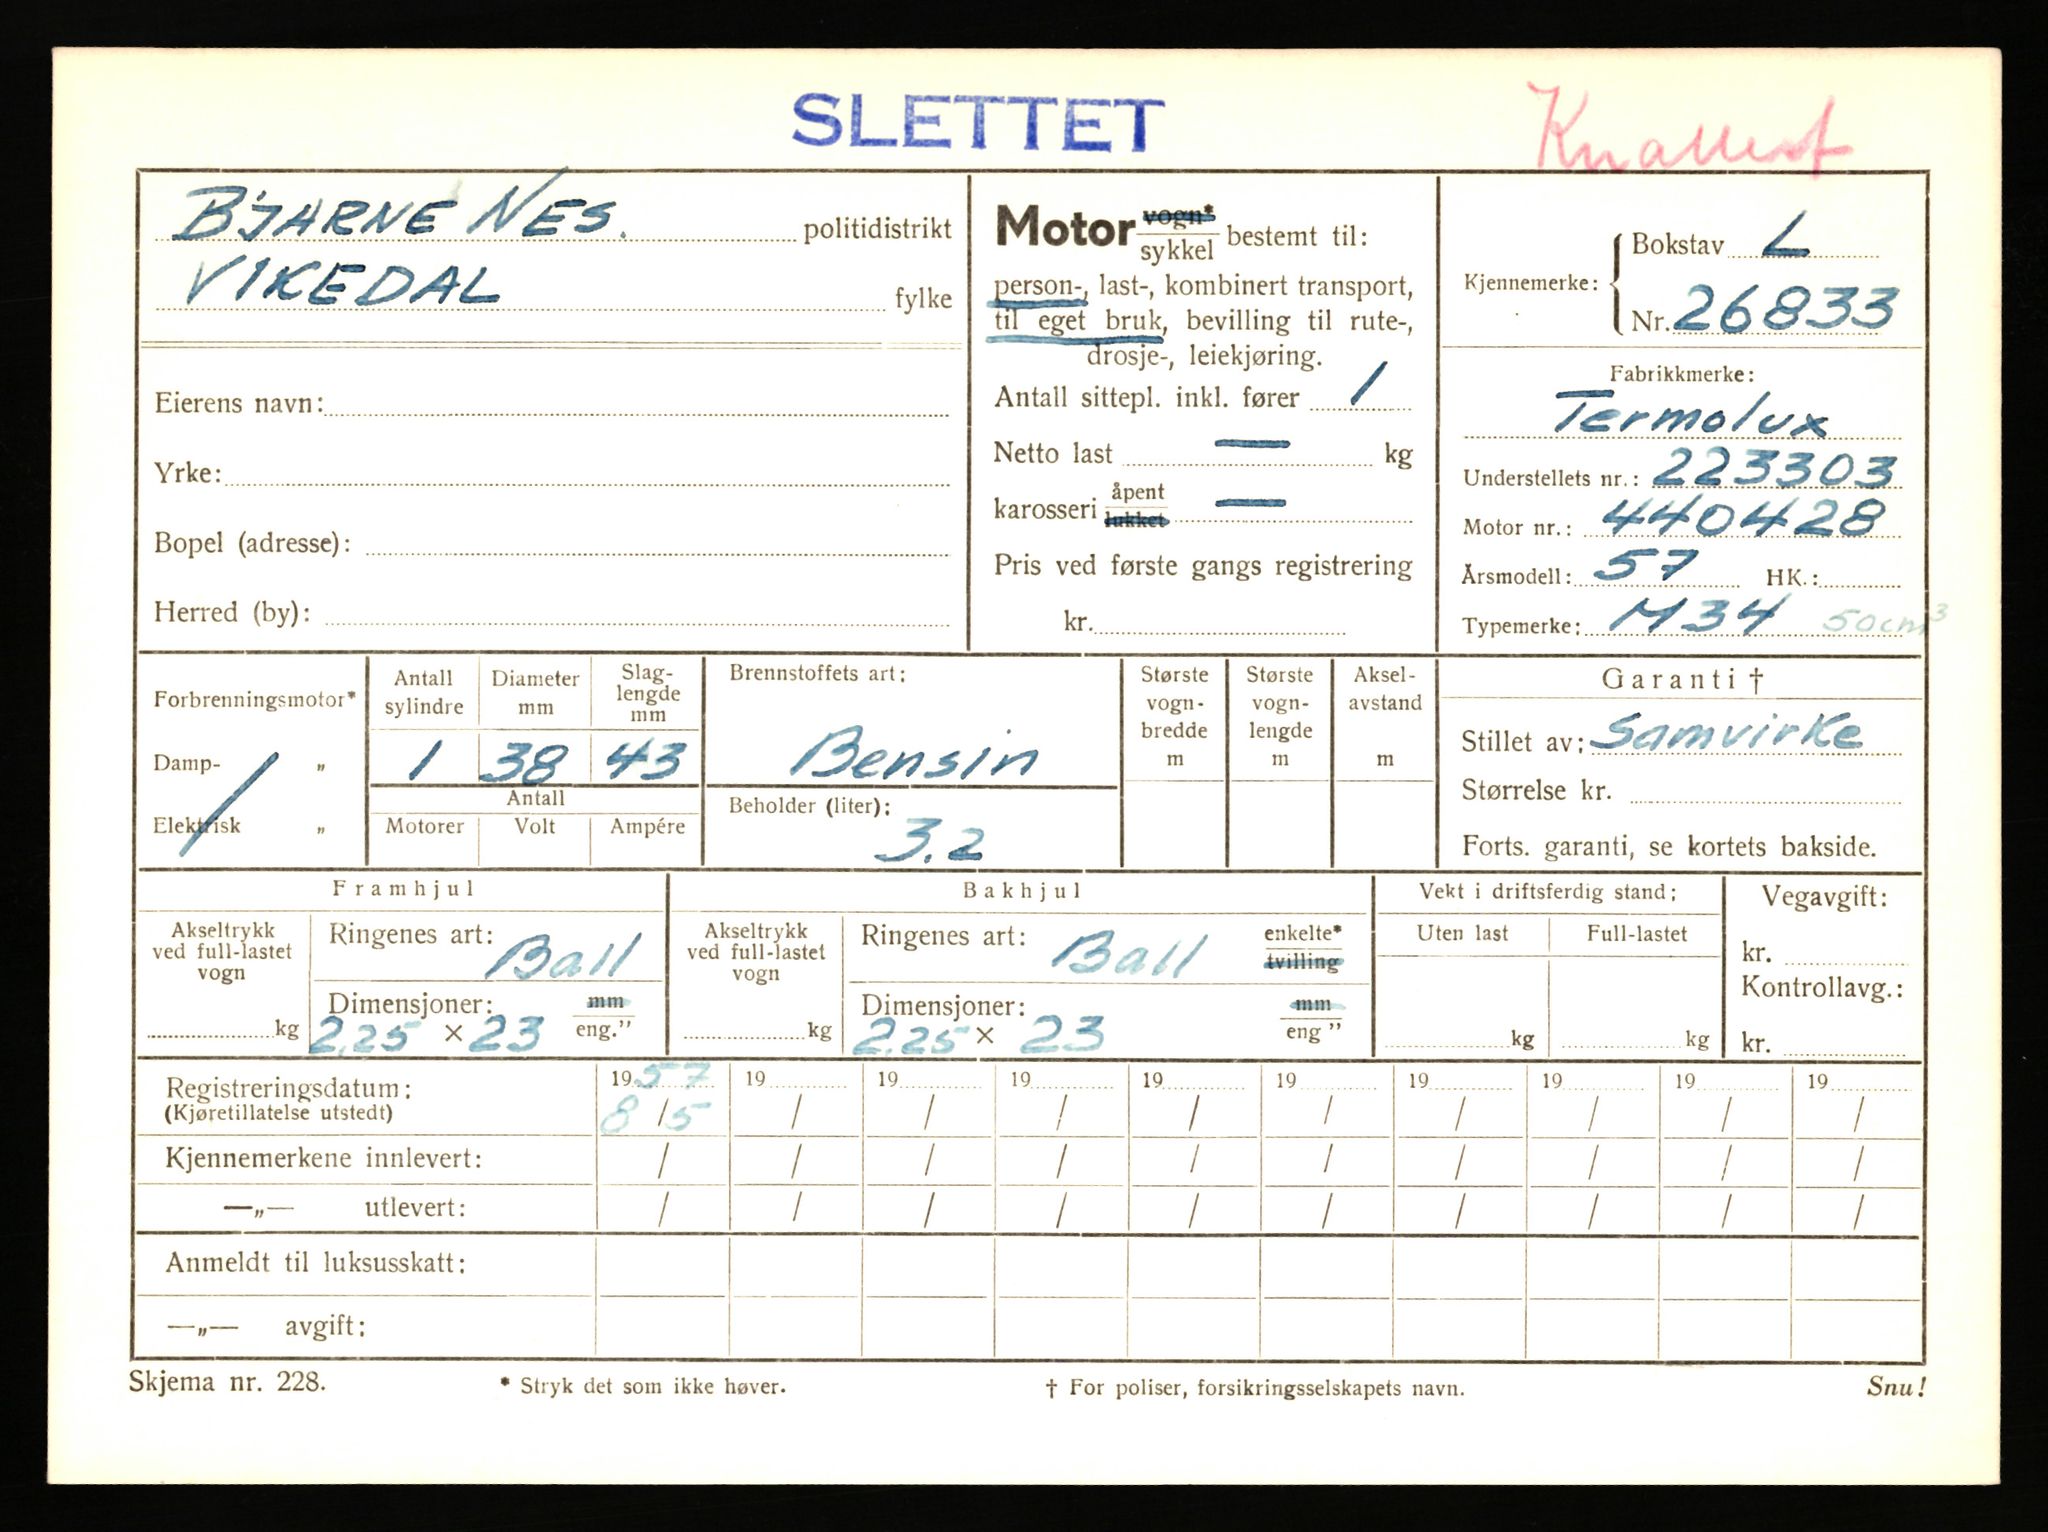 SLETTET
Knallert
BJARNE NES. politidistrikt
VIKEDAL fylke
Eierens navn:
Yrke:
Bopel (adresse):
Herred (by):
Motor vogn* sykkel bestemt til:
person-, last-, kombinert transport,
til eget bruk, bevilling til rute-,
drosje-, leiekjøring.
Antall sittepl. inkl. fører 1
Netto last — kg
karosseri åpent lukket —
Pris ved første gangs registrering
kr.
Kjennemerke: Bokstav L
Nr. 26833
Fabrikkmerke:
Termolux
Understellets nr.: 223303
Motor nr.: 440428
Årsmodell: 57 HK.:
Typemerke: M 34 50cm³
Forbrenningsmotor*
Damp- „
Elektrisk „
Antall sylindre Diameter mm Slag-lengde mm
1 38 43
Antall
Motorer Volt Ampére
Brennstoffets art:
Bensin
Beholder (liter):
3.2
Største vogn-bredde m
Største vogn-lengde m
Aksel-avstand m
Garanti †
Stillet av: Samvirke
Størrelse kr.
Forts. garanti, se kortets bakside.
Framhjul
Akseltrykk ved full-lastet vogn
kg
Ringenes art: Ball
Dimensjoner: mm
2.25 × 23 eng.”
Bakhjul
Akseltrykk ved full-lastet vogn
kg
Ringenes art: Ball enkelte* tvilling
Dimensjoner: mm
2.25 × 23 eng”
Vekt i driftsferdig stand:
Uten last Full-lastet
kg kg
Vegavgift:
kr.
Kontrollavg.:
kr.
Registreringsdatum: 19 57 19 19 19 19 19 19 19 19 19
(Kjøretillatelse utstedt) 8/5 / / / / / / / / /
Kjennemerkene innlevert: / / / / / / / / / /
—„— utlevert: / / / / / / / / / /
Anmeldt til luksusskatt:
—„— avgift:
Skjema nr. 228. * Stryk det som ikke høver. † For poliser, forsikringsselskapets navn. Snu!